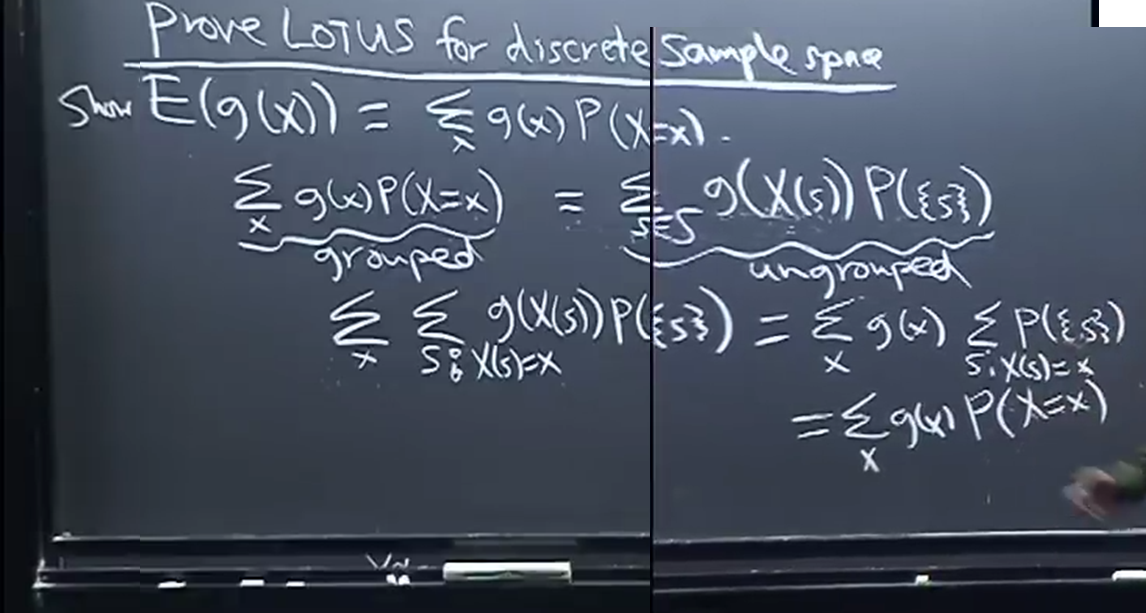 Prove LOTUS for discrete Sample space
Show E(g(X)) = Σ_x g(x) P(X=x).
Σ_x g(x) P(X=x) = Σ_{s∈S} g(X(s)) P({s})
grouped ungrouped
Σ_x Σ_{s: X(s)=x} g(X(s)) P({s}) = Σ_x g(x) Σ_{s: X(s)=x} P({s})
= Σ_x g(x) P(X=x)